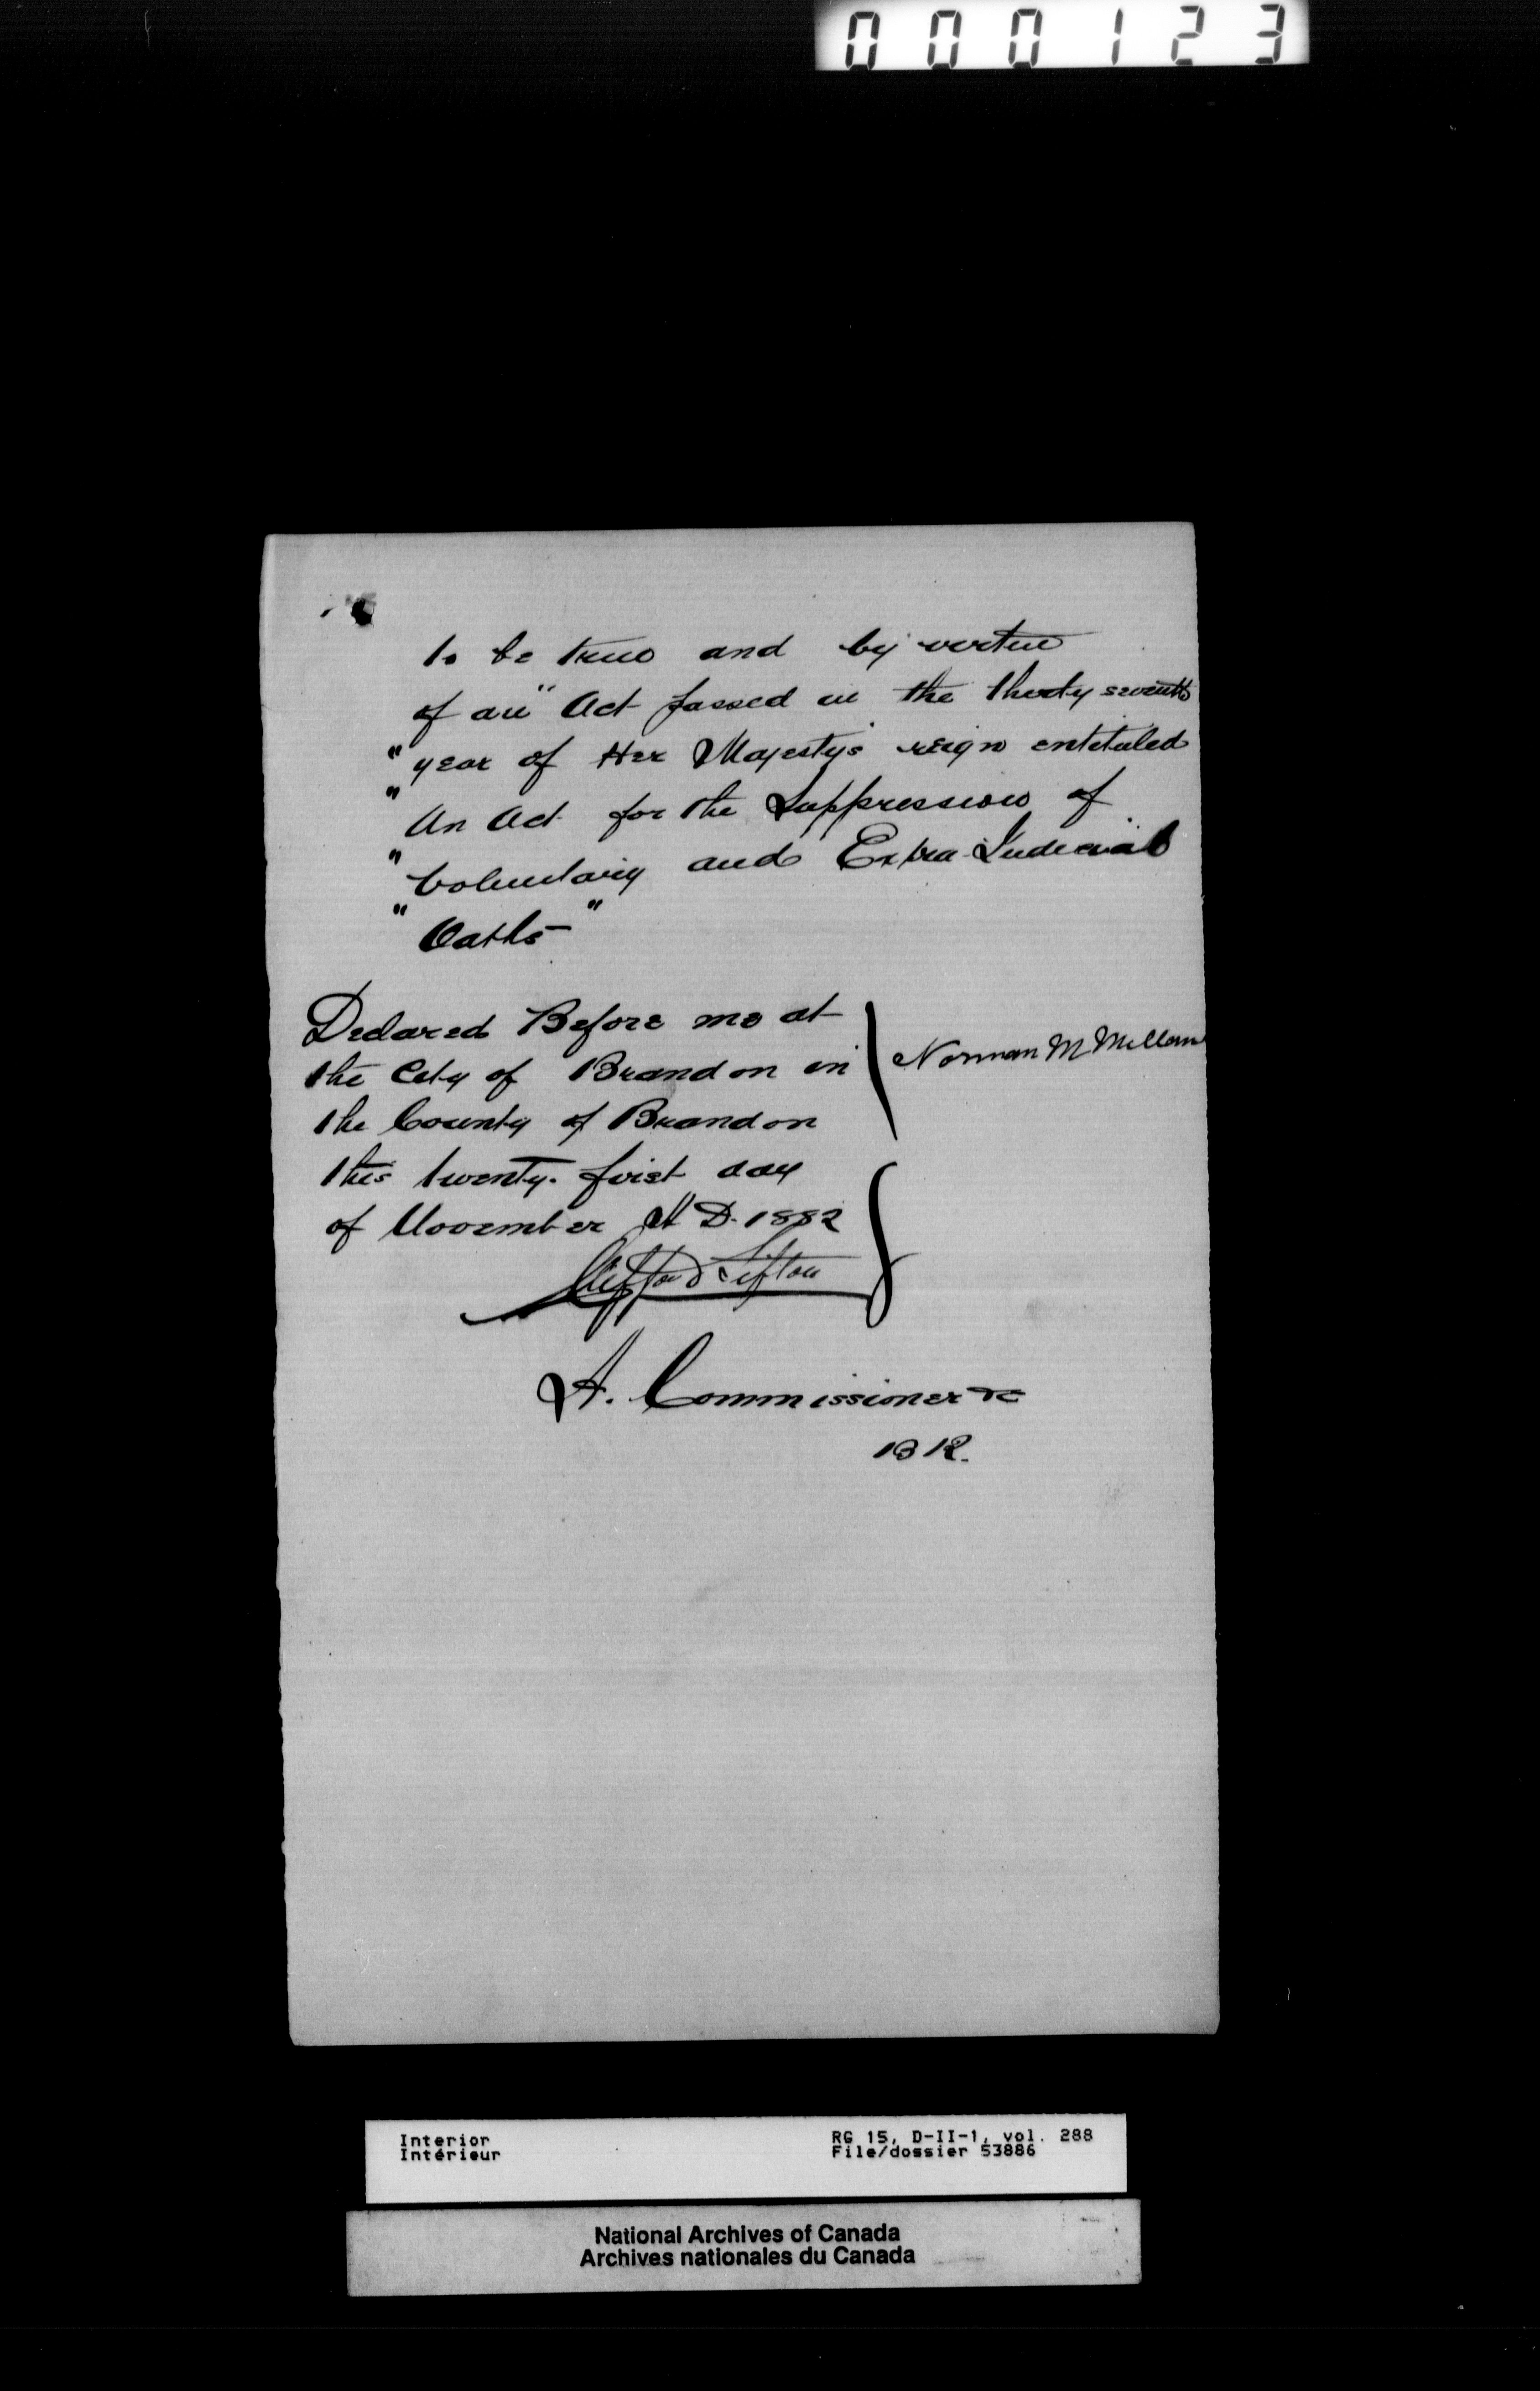 000123
to be true and by vertue
of an "Act passed in the thirty seventh
"year of Her Majesty's reign entituled
"An Act for the Suppression of
"Voluntary and Extra-Judicial
"Oaths"
Declared Before me at
the City of Brandon in
the County of Brandon
this twenty-first day
of November A D. 1882
Norman McMillan
Clifford Sifton
A. Commissioner &c
B R.
Interior
Intérieur
RG 15, D-II-1, vol. 288
File/dossier 53886
National Archives of Canada
Archives nationales du Canada